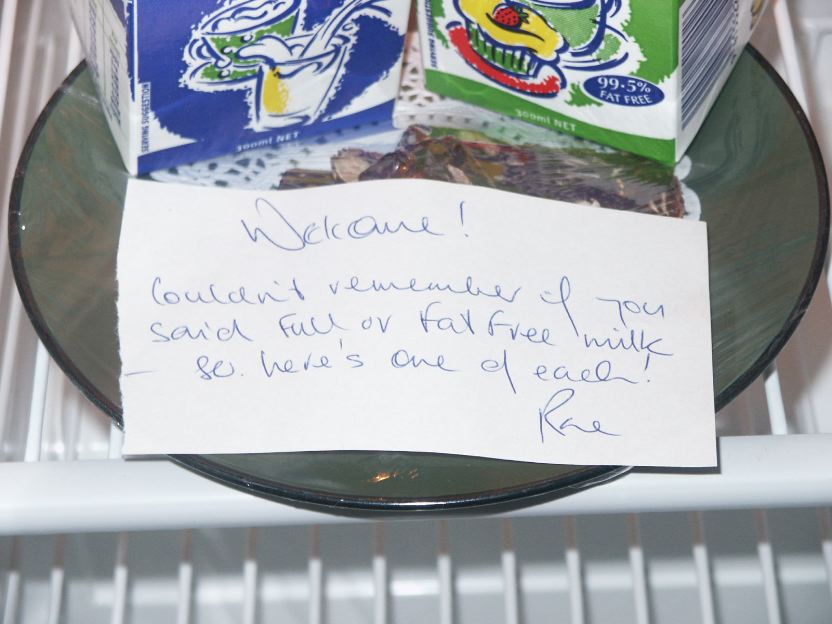 SERVING SUGGESTION
300ml NET
99.5%
FAT FREE
300ml NET
Welcome!
Couldn't remember if you
said Full or Fat Free milk
- so here's one of each!
Rae